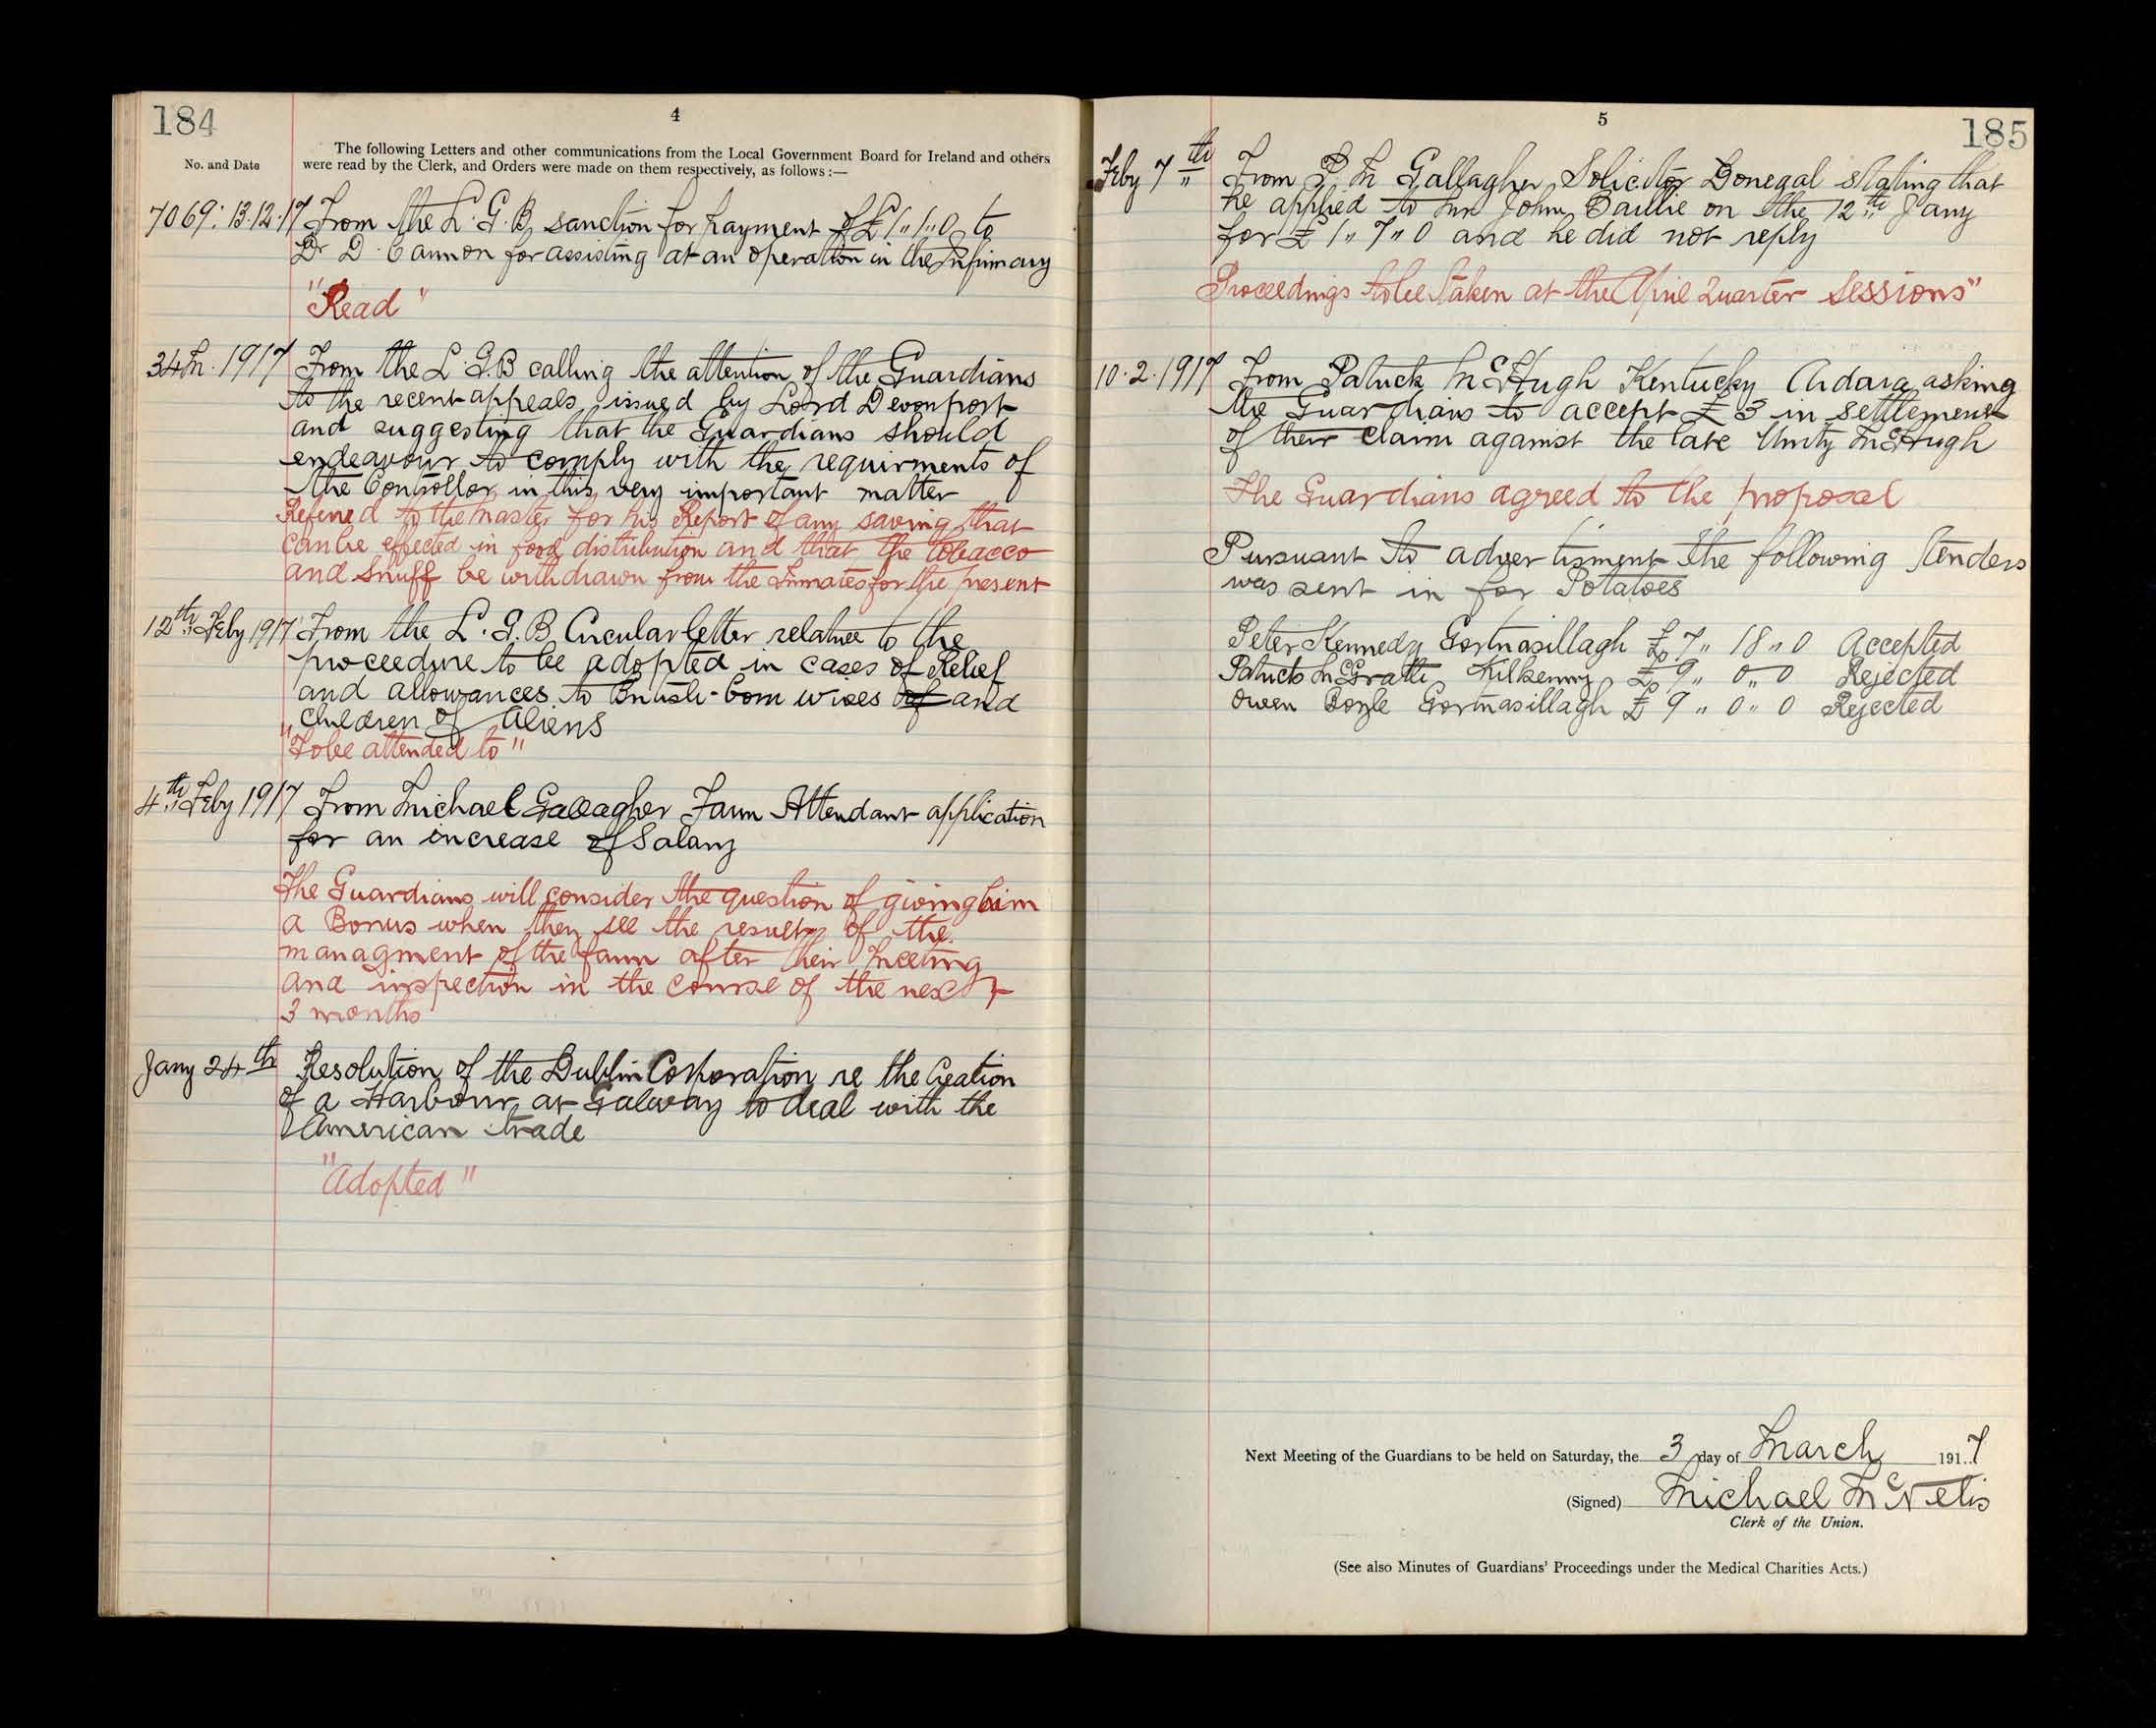 184
4
No. and Date
The following Letters and other communications from the Local Government Board for Ireland and others
were read by the Clerk, and Orders were made on them respectively, as follows :—
7069: 13.12.17 From the L. G. B. sanction for payment of £1"1"0 to
Dr D. Cannon for assisting at an operation in the Infirmary
"Read"
34M. 1917 From the L. G. B calling the attention of the Guardians
to the recent appeals issued by Lord Devonport
and suggesting that the Guardians should
endeavour to comply with the requirments of
the Controller in this very important matter
Referred to the Master for his Report of any saving that
can be effected in food distribution and that the tobacco
and snuff be withdrawn from the Inmates for the present
12th Feby 1917 From the L. G. B. Circular letter relative to the
proceedure to be adopted in cases of Relief
and allowances to British-born wives of and
children of Aliens
"To be attended to"
4th Feby 1917 From Michael Gallagher Farm Attendant application
for an increase of Salary
The Guardians will consider the question of giving him
a Bonus when they see the results of the
managment of the farm after their Meeting
and inspection in the course of the next
3 months
Jany 24th Resolution of the Dublin Corporation re the Creation
of a Harbour at Galway to deal with the
American trade
"Adopted"
5
185
Feby 7th From P. M. Gallagher Solicitor Donegal stating that
he applied to Mr John Baillie on the 12th Jany
for £1"7"0 and he did not reply
Proceedings to be taken at the April Quarter Sessions"
10.2.1917 From Patrick McHugh Kentucky Ardara asking
the Guardians to accept £3 in settlement
of their claim against the late Unity McHugh
The Guardians agreed to the proposal
Pursuant to advertisment the following Tenders
was sent in for Potatoes
Peter Kennedy Gortnasillagh £7"18"0 Accepted
Patrick McGrath Kilkenny £9"0"0 Rejected
Owen Boyle Gortnasillagh £9"0"0 Rejected
Next Meeting of the Guardians to be held on Saturday, the 3 day of March 1917
(Signed) Michael McNelis
Clerk of the Union.
(See also Minutes of Guardians' Proceedings under the Medical Charities Acts.)